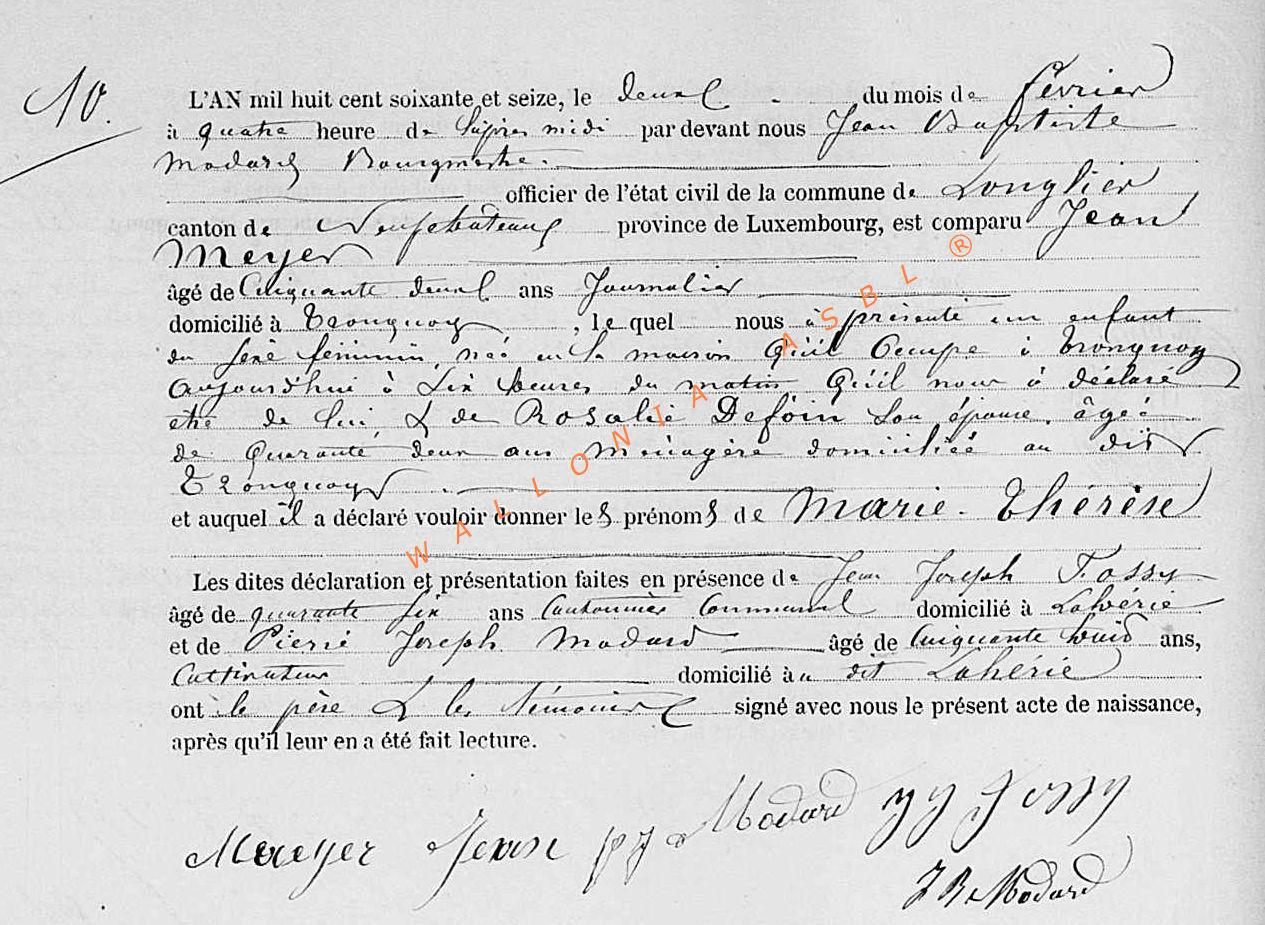 10.
L'AN mil huit cent soixante et seize, le deux du mois de février
à quatre heure de l'après midi par devant nous Jean Baptiste
Modard Bourgmestre.
officier de l'état civil de la commune de Longlier
canton de Neufchateau province de Luxembourg, est comparu Jean
Meyer
âgé de Cinquante deux ans Journalier
domicilié à Tronquoy, le quel nous à présenté un enfant
du sexe féminin, née en la maison qu'il occupe à Tronquoy
aujourd'hui à six heures du matin qu'il nous à déclaré
etre de lui & de Rosalie Defoin son épouse, âgée
de Quarante deux ans Ménagère domiciliée au dit
Tronquoy
et auquel il a déclaré vouloir donner les prénoms de Marie-Thérèse
Les dites déclaration et présentation faites en présence de Jean Joseph Fossy
âgé de quarante six ans Cantonnier Communal domicilié à Lahérie
et de Pierre Joseph Modard âgé de Cinquante huit ans,
Cultivateur domicilié au dit Lahérie
ont le père & les témoins signé avec nous le présent acte de naissance,
après qu'il leur en a été fait lecture.
Maeyer Jean pj Modard JJ Fossy
JB Modard
WALLONIA ASBL ®